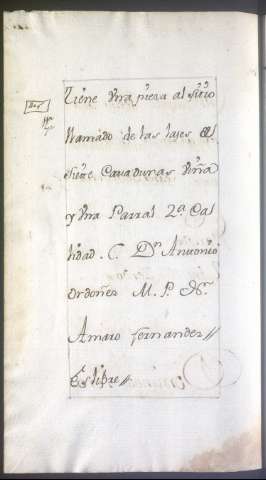 Tiene Vna pieza al sitio
llamado de las lajes de
siette Cavaduras Viña
y Vna Parral 2ª Cal
lidad. C. Dn Anttonio
Ordoñez M. P. Dn.
Amaro Fernandez//
Es libre//